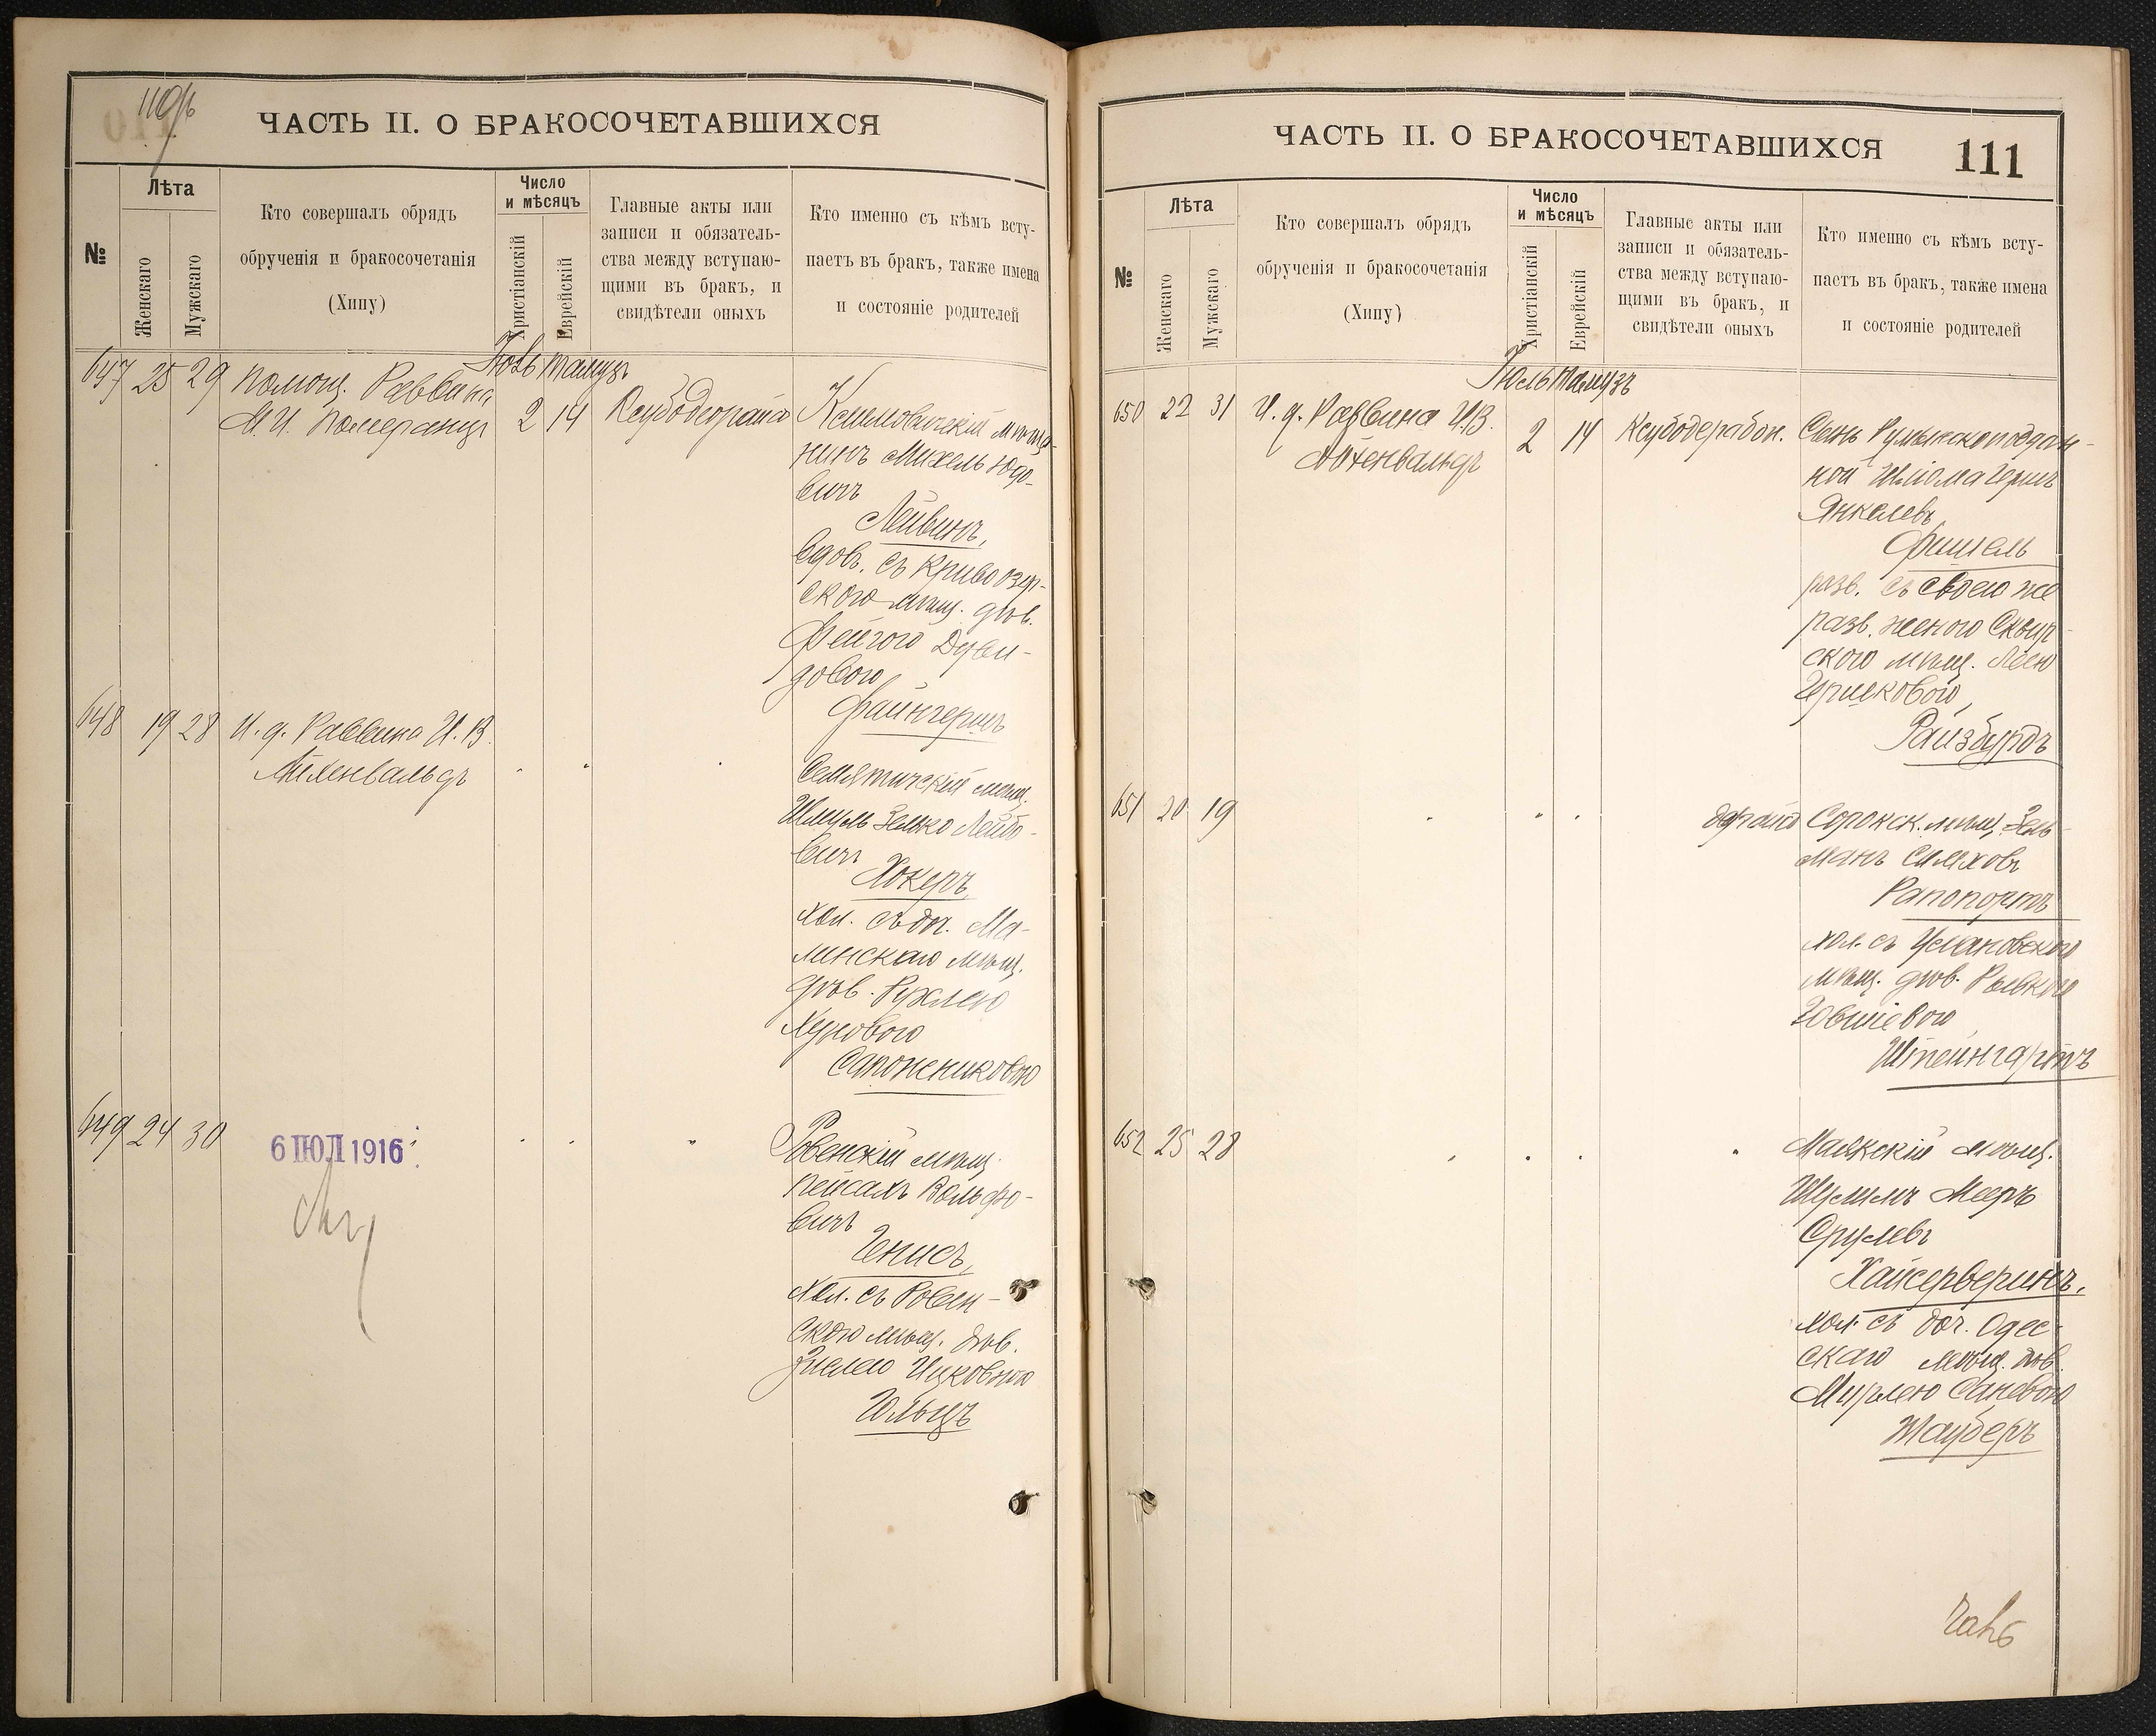 110/б
ЧАСТЬ II. О БРАКОСОЧЕТАВШИХСЯ
№
Лѣта
Женскаго
Мужскаго
Кто совершалъ обрядъ
обрученія и бракосочетанія
(Хипу)
Число
и мѣсяцъ
Христіанскій
Еврейскій
Главные акты или
записи и обязатель-
ства между вступаю-
щими въ бракъ, и
свидѣтели оныхъ
Кто именно съ кѣмъ всту-
паетъ въ бракъ, также имена
и состояніе родителей
Тамузъ
647 25 29 Помощ. Раввина
М.И. Померанцъ 2 14
мѣща-
нинъ Михель Юдо-
вичъ
Лейвинъ,
вдов. съ Кривоозер-
ского мѣщ. дѣв.
Фейгою Дуви-
довою
Файнгершъ
648 19 28 И. д. Раввина И. В.
Айхенвальдъ
Семятичскій мѣщ.
Шмуль Зелько Лейбо-
вичъ
Хокеръ,
хол. съ доч. Ма-
линскаго мѣщ.
дѣв. Рухлею
Хуновою
Сапожниковою
649 24 30
6 ІЮЛ 1916
Ровенскій мѣщ.
Пейсахъ Вольфо-
вичъ
Генисъ,
хол. съ Ровен-
скою мѣщ. дѣв.
Ицковною
Гольцъ
ЧАСТЬ II. О БРАКОСОЧЕТАВШИХСЯ
111
№
Лѣта
Женскаго
Мужскаго
Кто совершалъ обрядъ
обрученія и бракосочетанія
(Хипу)
Число
и мѣсяцъ
Христіанскій
Еврейскій
Главные акты или
записи и обязатель-
ства между вступаю-
щими въ бракъ, и
свидѣтели оныхъ
Кто именно съ кѣмъ всту-
паетъ въ бракъ, также имена
и состояніе родителей
Іюль Тамузъ
650 22 31 И. д. Раввина И.В.
Айхенвальдъ
2 14 Ксубодерабон. Сынъ Румынскоподдан-
кой Шлома Гершъ
Янкелевъ
Фишель
разв. съ своею же
разв. женою Сквир-
скою мѣщ. Леею
Гершковою,
Райзбурдъ
651 20 19
Сорокск. мѣщ. Зель-
манъ Симховъ
Рапопортъ
хол. съ
мѣщ. дѣв. Ривкою
Іовшіевою
Штейнгартъ
652 25 28
Маякскій мѣщ.
Шулимъ Мееръ
Срулевъ
Хайсерверинъ.
хол. съ доч. Одес-
скаго мѣщ. дѣв.
Мирлею
Тауберъ